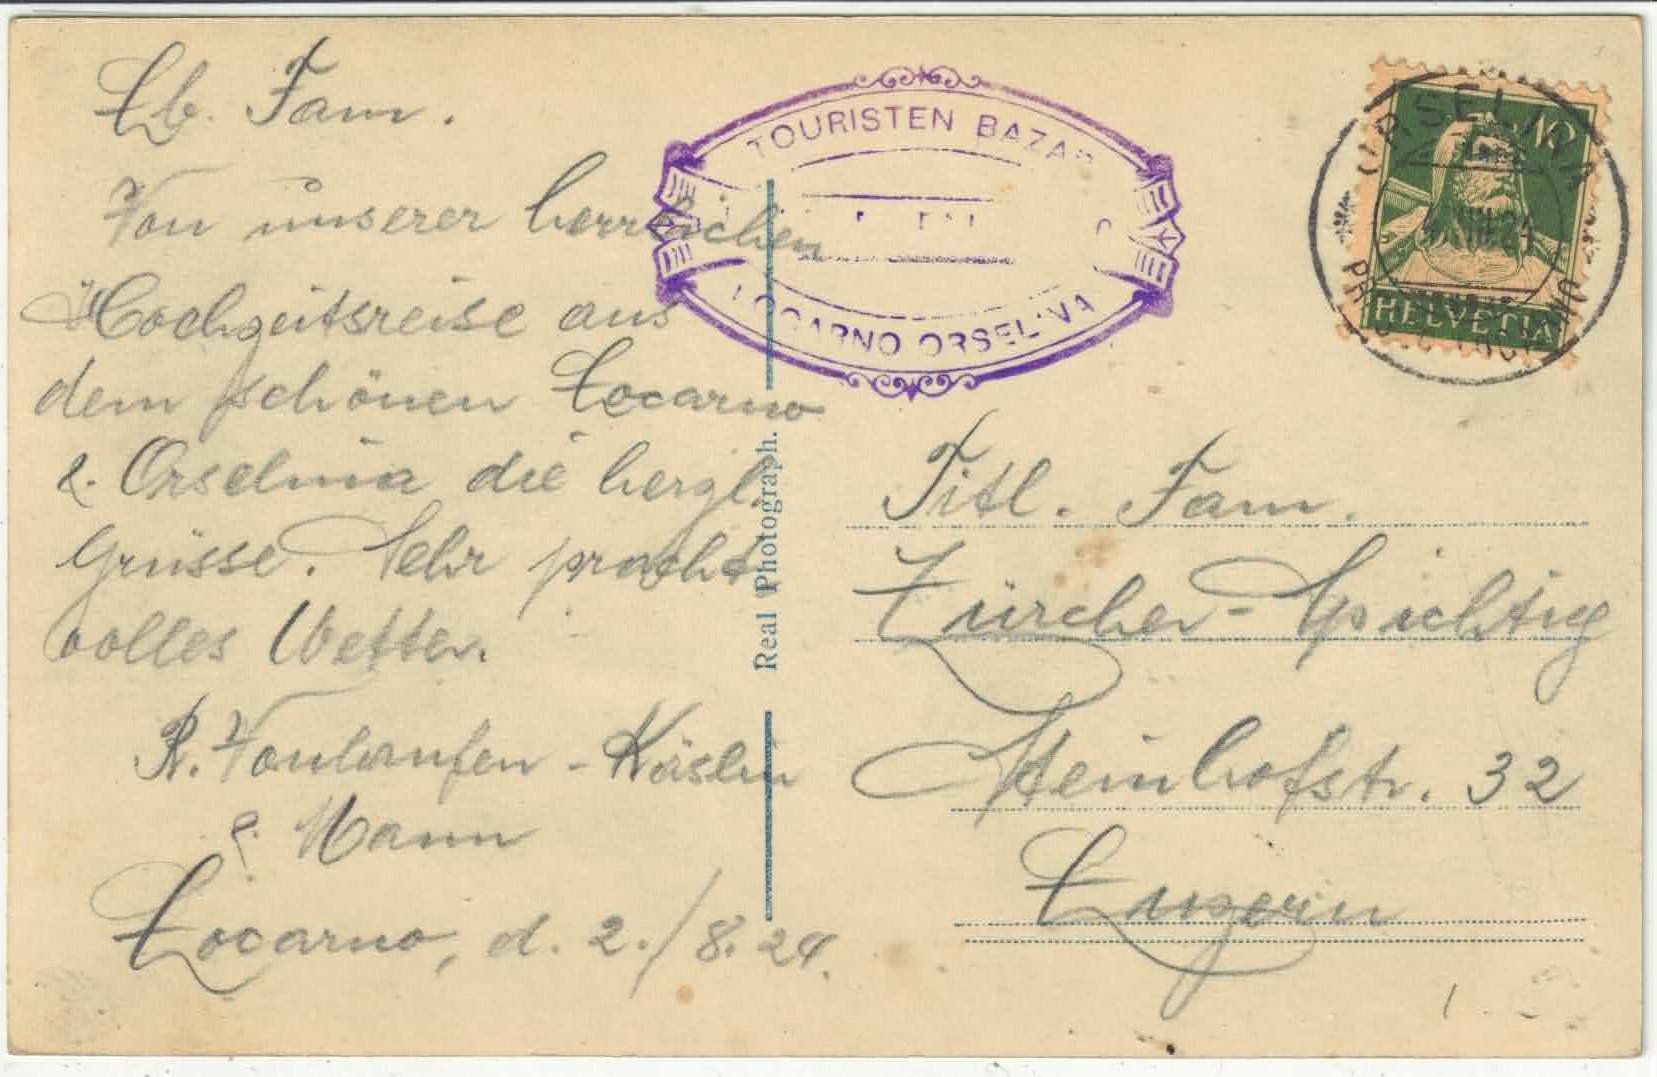 Lb. Fam.
Von unserer herrlichen
Hochzeitsreise aus
dem schönen Locarno
& Orselina die herzl.
Grüsse. Sehr pracht
volles Wetter.
R. Vonlaufen - Käslin
& Mann
Locarno, d. 2./8.24.
TOURISTEN BAZAR
LOCARNO ORSELINA
Real Photograph.
ORSELINA
10
HELVETIA
Titl. Fam.
Zürcher - Spichtig
Steinhofstr. 32
Luzern